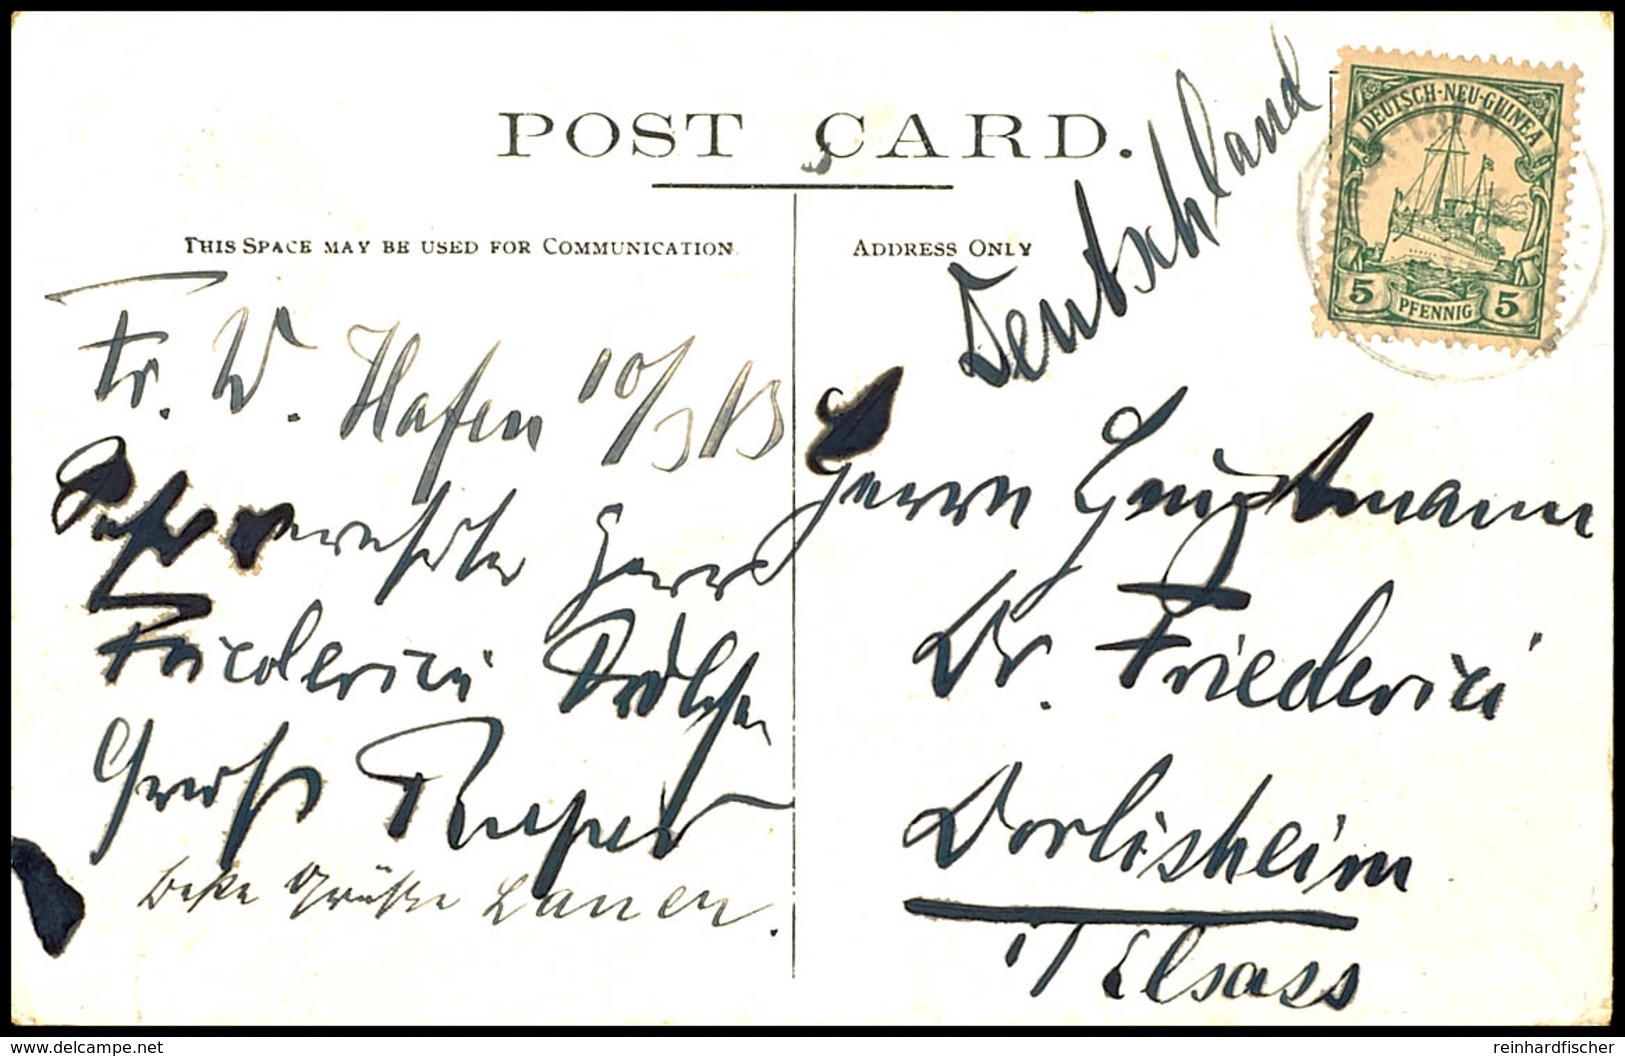 POST CARD.
THIS SPACE MAY BE USED FOR COMMUNICATION.
ADDRESS ONLY
DEUTSCH-NEU-GUINEA
5 PFENNIG 5
Deutschland
Fr. W. Hafen 10/3 13
Sehr verehrter Herr
Friederici
Gruß
Beste Grüße
Herrn Hauptmann
Dr. Friederici
Dorlisheim
i/ Elsass
delcampe.net
reinhardfischer